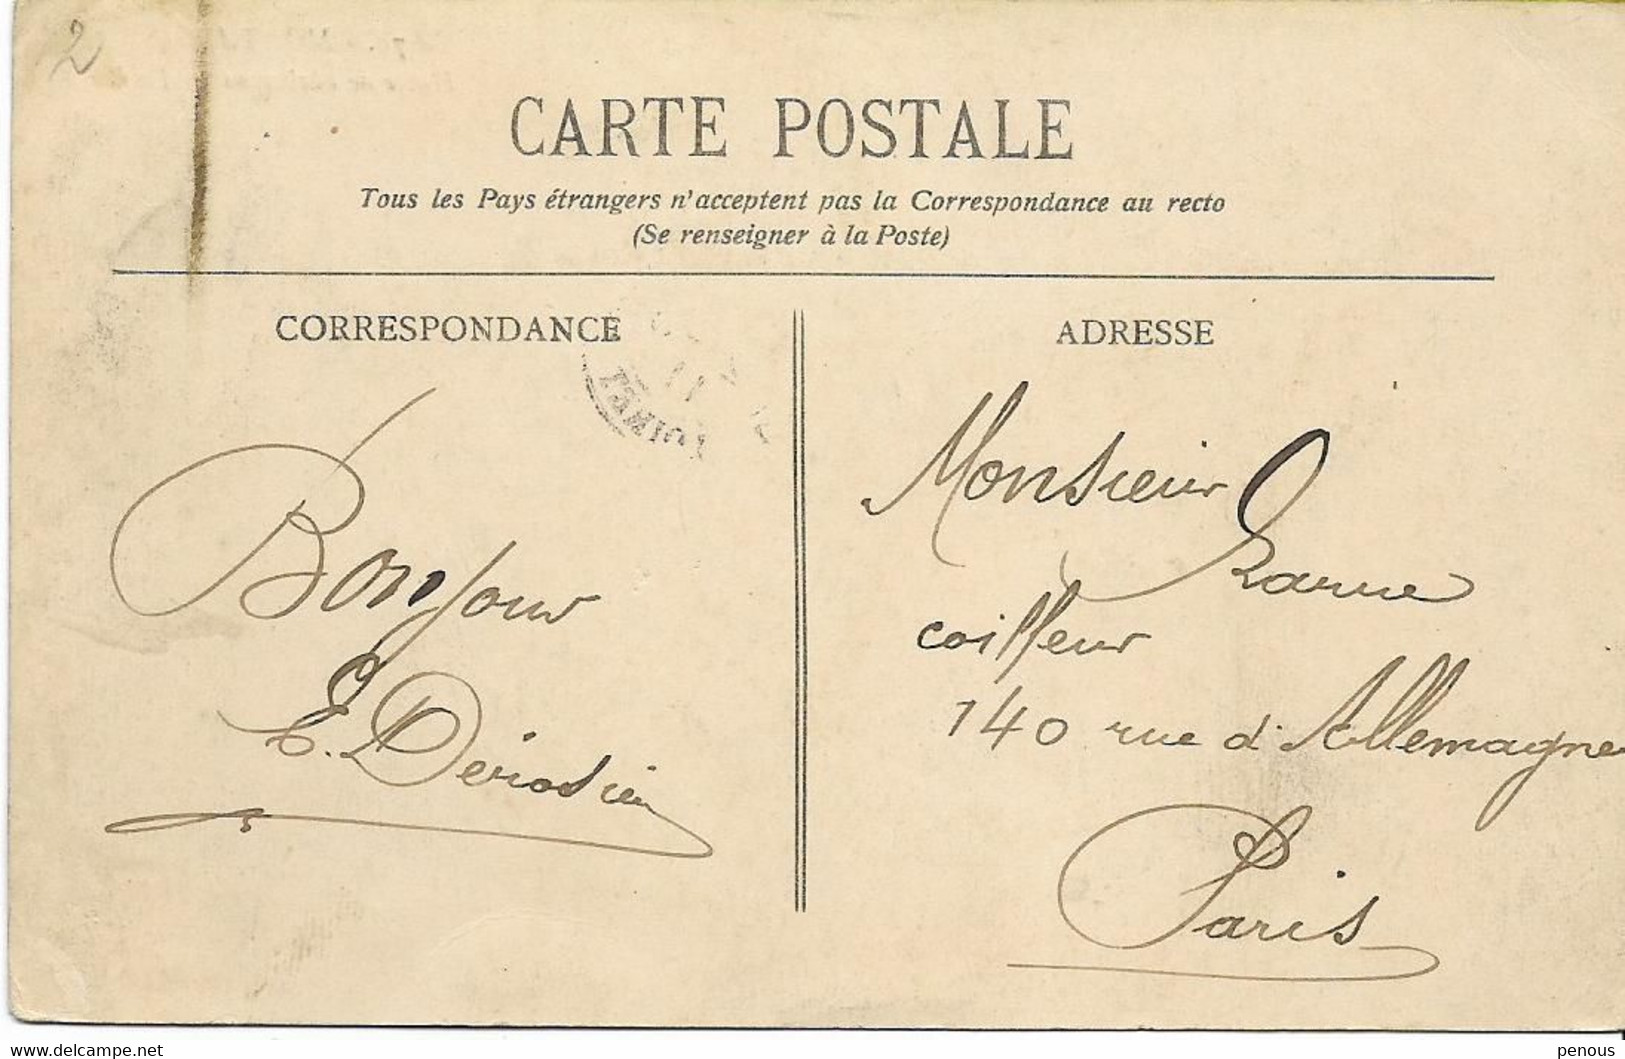 2
CARTE POSTALE
Tous les Pays étrangers n'acceptent pas la Correspondance au recto
(Se renseigner à la Poste)
CORRESPONDANCE
ADRESSE
Bonjour
E. Derosier
Monsieur
Larue
coiffeur
140 rue d'Allemagne
Paris
www.delcampe.net
penous